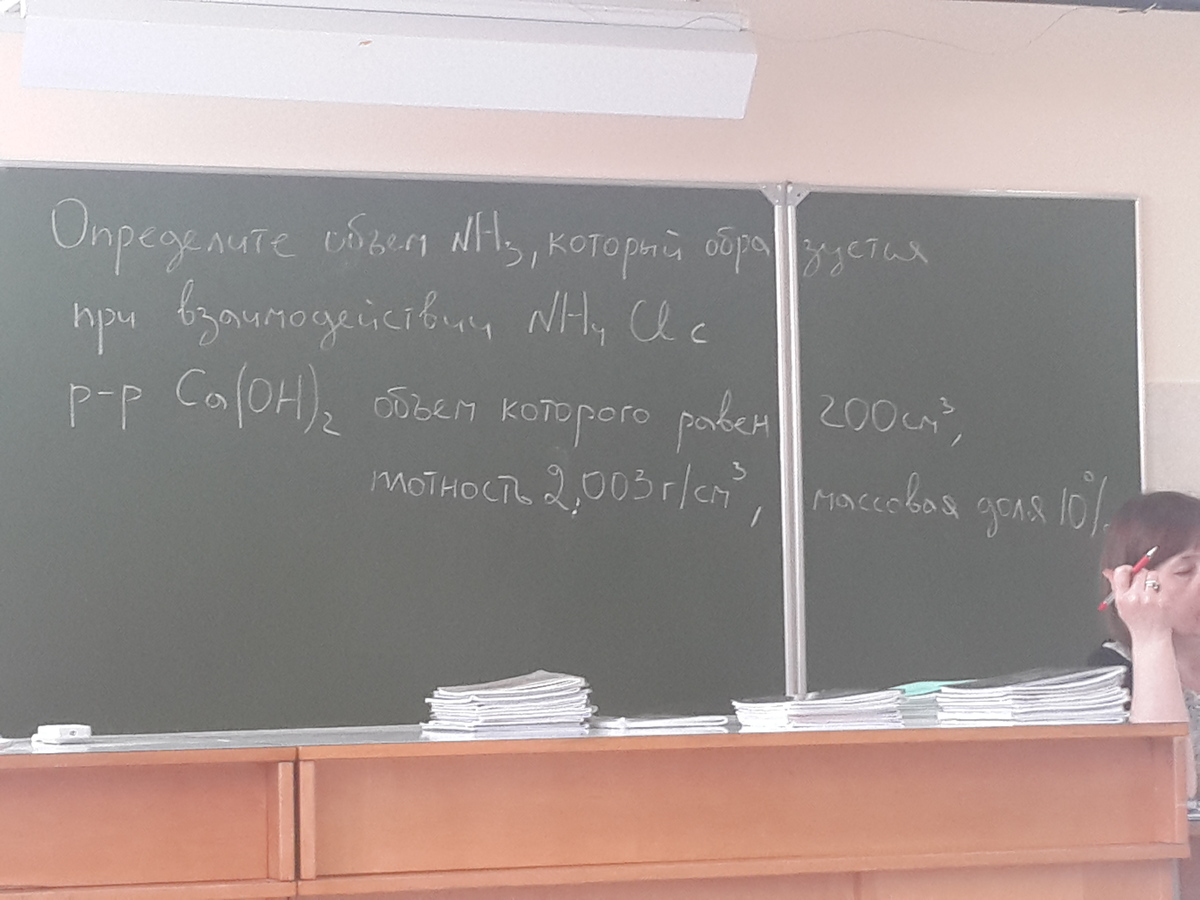 Определите объем NH₃, который образуется
при взаимодействии NH₄Cl с
р-р Ca(OH)₂ объем которого равен 200 см³,
плотность 2,003 г/см³, массовая доля 10%